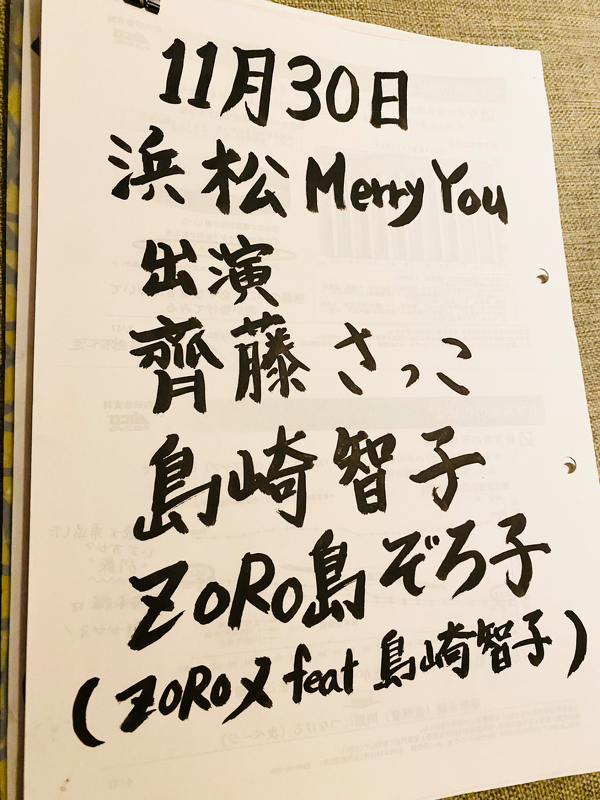 11月30日
浜松 Merry You
出演
齊藤さっこ
島崎智子
ZoRo島ぞろ子
(ZORO又 feat 島崎智子)